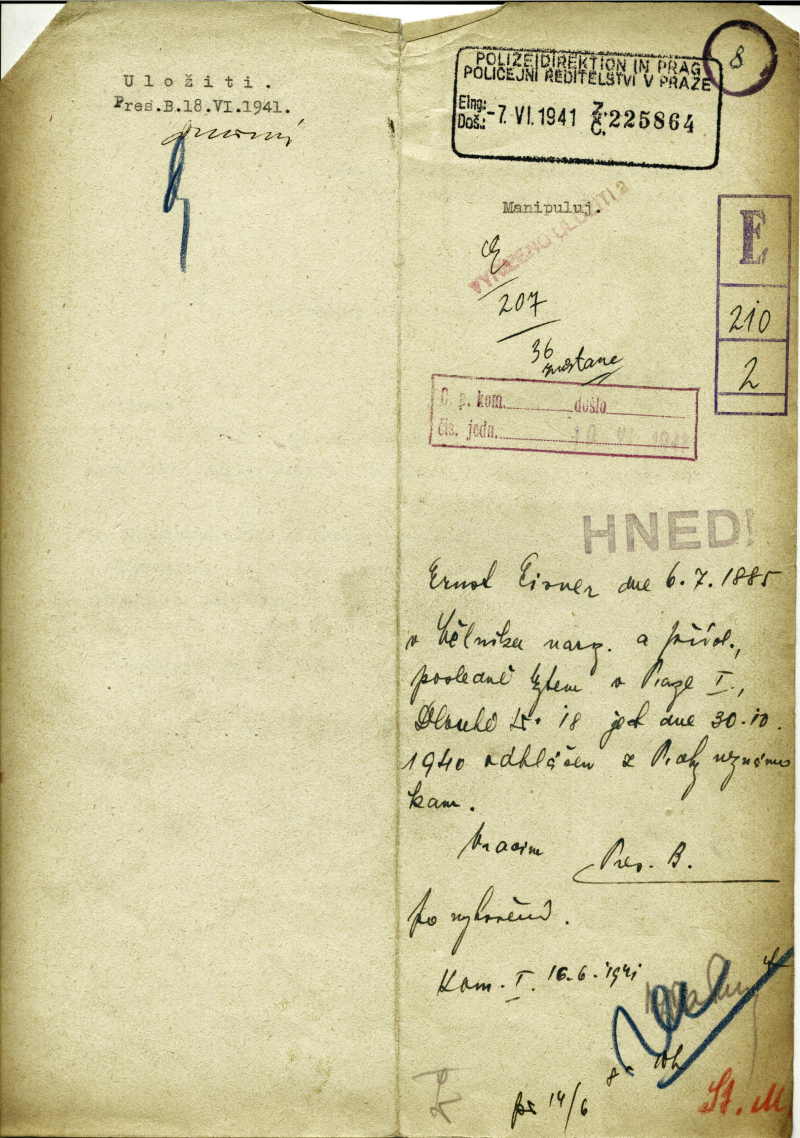 Uložiti.
Pres.B.18.VI.1941.
8
POLIZEIDIREKTION IN PRAG
POLICEJNÍ ŘEDITELSTVÍ V PRAZE
Eing.:
Doš.: -7. VI. 1941 Z. Č. 225864
Manipuluj.
VYŘÍZENO ULOŽITI
E
207
36
zůstane
E
210
2
O. p. kom. došlo
čís. jedn. 10 VI 1941
HNED!
Ernst Eisner dne 6.7.1885
v narz. a přísl.,
posledně bytem v Praze I.,
Dlouhá tř. 18 jest dne 30.10.
1940 odhlášen z Prahy neznámo
kam.
Vracím
Pres. B.
po vyřízení.
Kom. I. 16.6.1941
14/6
St. M.